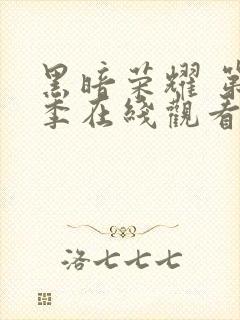 黑暗荣耀 第
季在綫觀看
洛七七七